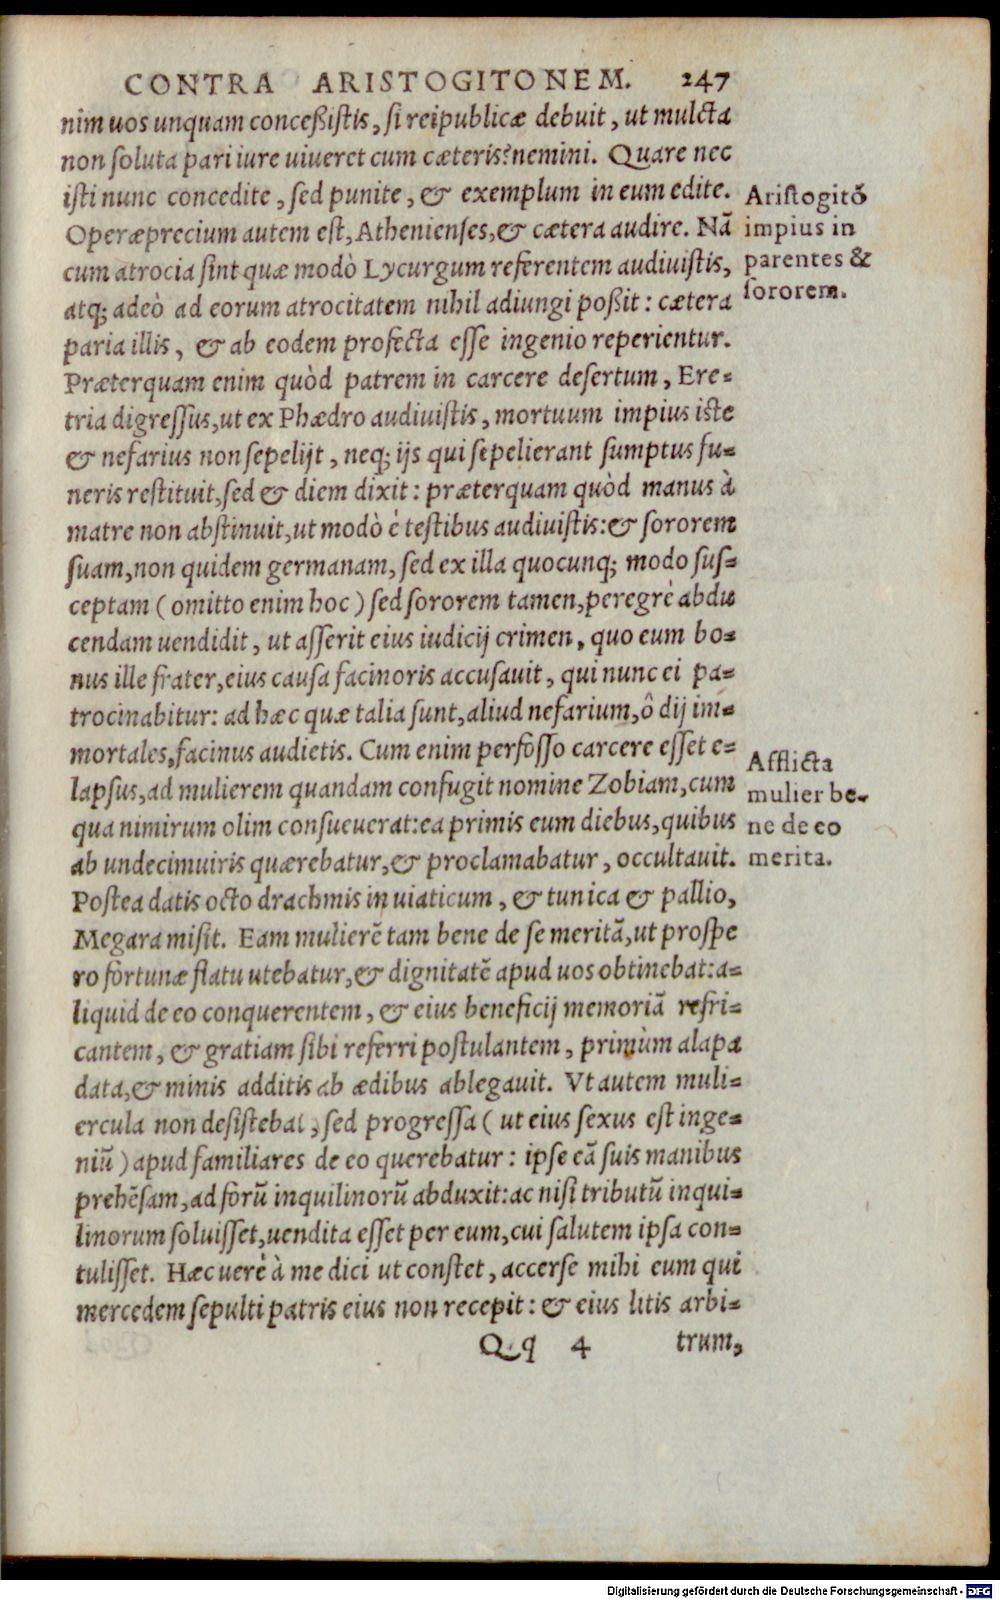 CONTRA ARISTOGITONEM. 247
nim uos unquam conceßistis, si reipublicæ debuit, ut mulcta
non soluta pari iure uiueret cum cæteris? nemini. Quare nec
isti nunc concedite, sed punite, & exemplum in eum edite.
Operæprecium autem est, Athenienses, & cætera audire. Nã
cum atrocia sint quæ modò Lycurgum referentem audiuistis,
atq; adeò ad eorum atrocitatem nihil adiungi poßit: cætera
paria illis, & ab eodem profecta esse ingenio reperientur.
Præterquam enim quòd patrem in carcere desertum, Ere=
tria digressus, ut ex Phædro audiuistis, mortuum impius iste
& nefarius non sepelijt, neq; ijs qui sepelierant sumptus fu=
neris restituit, sed & diem dixit: præterquam quòd manus à
matre non abstinuit, ut modò è testibus audiuistis: & sororem
suam, non quidem germanam, sed ex illa quocunq; modo sus=
ceptam (omitto enim hoc) sed sororem tamen, peregrè abdu
cendam uendidit, ut asserit eius iudicij crimen, quo eum bo=
nus ille frater, eius causa facinoris accusauit, qui nunc ei pa=
trocinabitur: ad hæc quæ talia sunt, aliud nefarium, ô dij im=
mortales, facinus audietis. Cum enim perfosso carcere esset e=
lapsus, ad mulierem quandam confugit nomine Zobiam, cum
qua nimirum olim consueuerat: ea primis eum diebus, quibus
ab undecimuiris quærebatur, & proclamabatur, occultauit.
Postea datis octo drachmis in uiaticum, & tunica & pallio,
Megara misit. Eam mulierẽ tam bene de se meritã, ut prospe
ro fortunæ flatu utebatur, & dignitatẽ apud uos obtinebat: a=
liquid de eo conquerentem, & eius beneficij memoriã refri=
cantem, & gratiam sibi referri postulantem, primùm alapa
data, & minis additis ab ædibus ablegauit. Vt autem muli=
ercula non desistebat, sed progressa (ut eius sexus est inge=
niũ) apud familiares de eo querebatur: ipse eã suis manibus
prehẽsam, ad forũ inquilinorũ abduxit: ac nisi tributũ inqui=
linorum soluisset, uendita esset per eum, cui salutem ipsa con=
tulisset. Hæc uerè à me dici ut constet, accerse mihi eum qui
mercedem sepulti patris eius non recepit: & eius litis arbi=
Qq 4 trum,
Aristogitõ
impius in
parentes &
sororem.
Afflicta
mulier be-
ne de eo
merita.
Digitalisierung gefördert durch die Deutsche Forschungsgemeinschaft - DFG